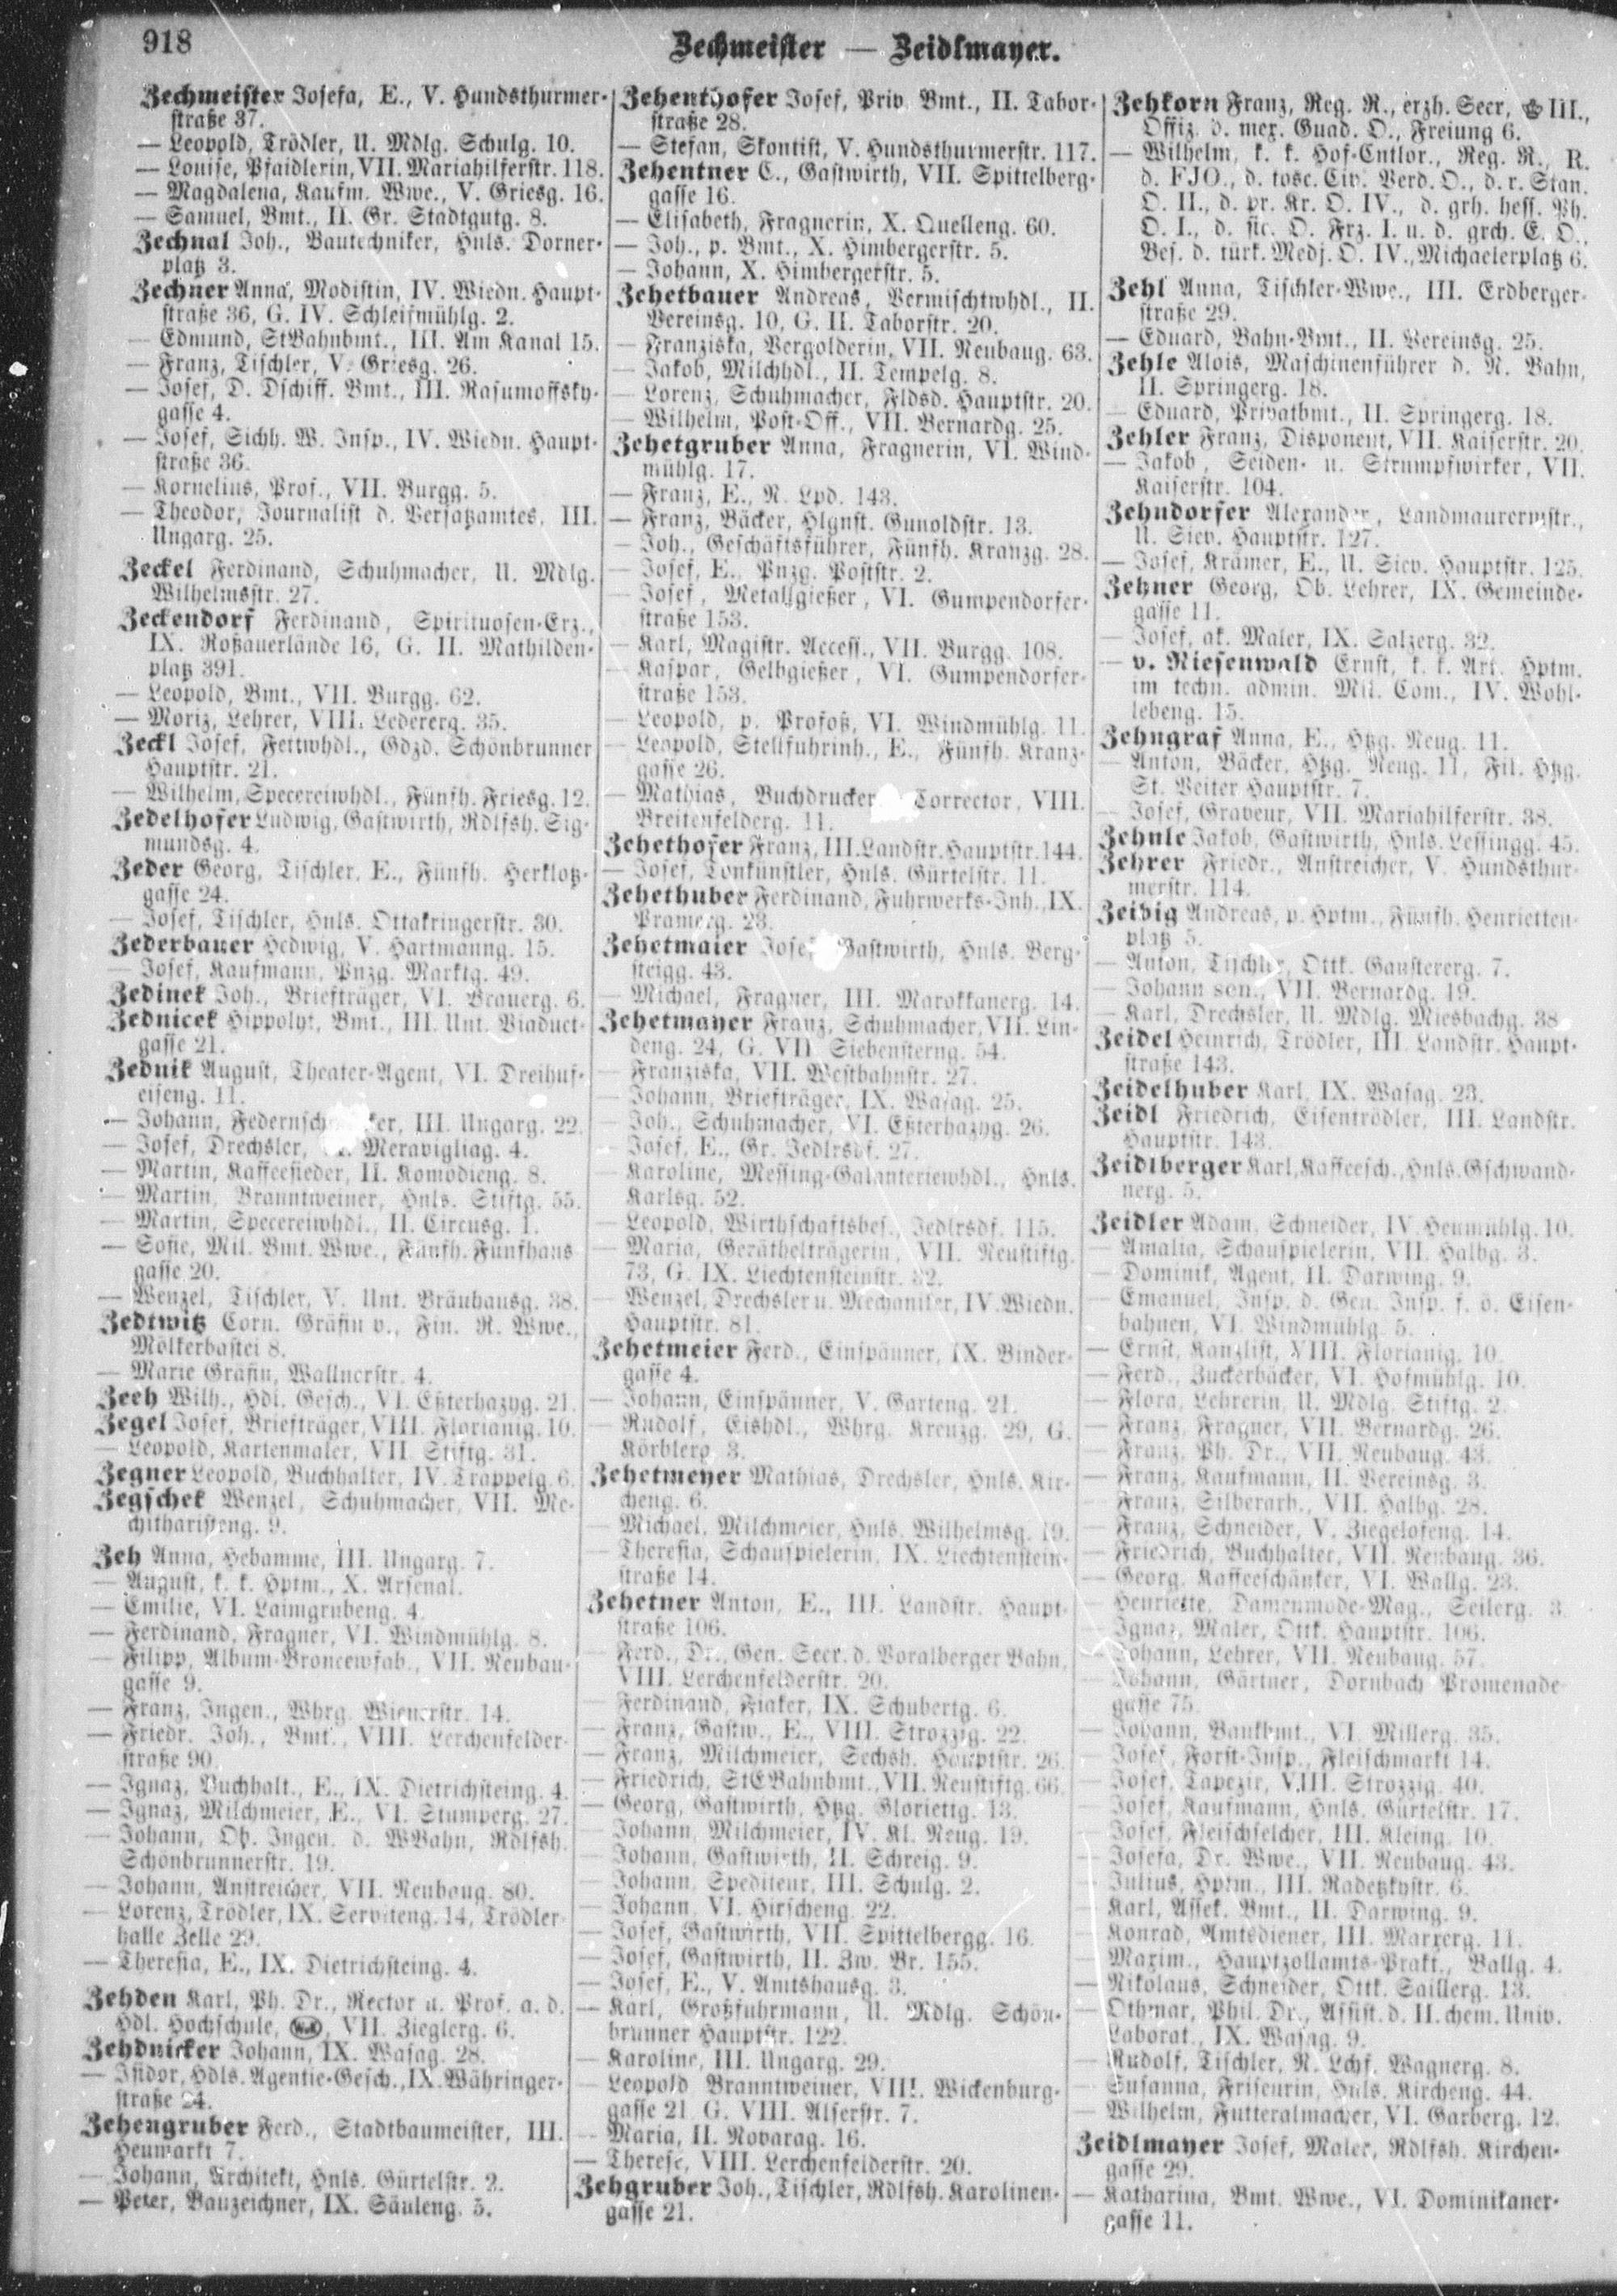 918
Zechmeister — Zeidlmayer.
Zechmeister Josefa, E., V. Hundsthurmer-
straße 37.
— Leopold, Trödler, U. Mdlg. Schulg. 10.
— Louise, Pfaidlerin, VII. Mariahilferstr. 118.
— Magdalena, Kaufm. Wwe., V. Griesg. 16.
— Samuel, Bmt., II. Gr. Stadtgutg. 8.
Zechnal Joh., Bautechniker, Hnls. Dorner-
platz 3.
Zechner Anna, Modistin, IV. Wiedn. Haupt-
straße 36, G. IV. Schleifmühlg. 2.
— Edmund, StBahnbmt., III. Am Kanal 15.
— Franz, Tischler, V. Griesg. 26.
— Josef, D. Dschiff. Bmt., III. Rasumoffsky-
gasse 4.
— Josef, Sichh. W. Insp., IV. Wiedn. Haupt-
straße 36.
— Kornelius, Prof., VII. Burgg. 5.
— Theodor, Journalist d. Versatzamtes, III.
Ungarg. 25.
Zeckel Ferdinand, Schuhmacher, U. Mdlg.
Wilhelmsstr. 27.
Zeckendorf Ferdinand, Spirituosen-Erz.,
IX. Roßauerlände 16, G. II. Mathilden-
platz 391.
— Leopold, Bmt., VII. Burgg. 62.
— Moriz, Lehrer, VIII. Ledererg. 35.
Zeckl Josef, Fettwhdl., Gdzd. Schönbrunner
Hauptstr. 21.
— Wilhelm, Specereiwhdl., Fünfh. Friesg. 12.
Zedelhofer Ludwig, Gastwirth, Rdlfsh. Sig-
mundsg. 4.
Zeder Georg, Tischler, E., Fünfh. Herklotz-
gasse 24.
— Josef, Tischler, Hnls. Ottakringerstr. 30.
Zederbauer Hedwig, V. Hartmanng. 15.
— Josef, Kaufmann, Pnzg. Marktg. 49.
Zedinek Joh., Briefträger, VI. Brauerg. 6.
Zednicek Hippolyt, Bmt., III. Unt. Viaduct-
gasse 21.
Zednik August, Theater-Agent, VI. Dreihuf-
eiseng. 11.
— Johann, III. Ungarg. 22.
— Josef, Drechsler, Meravigliag. 4.
— Martin, Kaffeesieder, II. Komödieng. 8.
— Martin, Branntweiner, Hnls. Stiftg. 55.
— Martin, Specereiwhdl., II. Circusg. 1.
— Sofie, Mil. Bmt. Wwe., Fünfh. Fünfhaus
gasse 20.
— Wenzel, Tischler, V. Unt. Bräuhausg. 38.
Zedtwitz Corn. Gräfin v., Fin. R. Wwe.,
Mölkerbastei 8.
— Marie Gräfin, Wallnerstr. 4.
Zeeh Wilh., Hdl. Gesch., VI. Eßterhazyg. 21.
Zegel Josef, Briefträger, VIII. Florianig. 10.
— Leopold, Kartenmaler, VII. Stiftg. 31.
Zegner Leopold, Buchhalter, IV. Trappelg. 6.
Zegschek Wenzel, Schuhmacher, VII. Me-
chitharisteng. 9.
Zeh Anna, Hebamme, III. Ungarg. 7.
— August, k. k. Hptm., X. Arsenal.
— Emilie, VI. Laimgrubeng. 4.
— Ferdinand, Fragner, VI. Windmühlg. 8.
— Filipp, Album-Broncewfab., VII. Neubau-
gasse 9.
— Franz, Ingen., Whrg. Wienerstr. 14.
— Friedr. Joh., Bmt., VIII. Lerchenfelder-
straße 90.
— Ignaz, Buchhalt., E., IX. Dietrichsteing. 4.
— Ignaz, Milchmeier, E., VI. Stumperg. 27.
— Johann, Ob. Ingen. d. WBahn, Rdlfsh.
Schönbrunnerstr. 19.
— Johann, Anstreicher, VII. Neubaug. 80.
— Lorenz, Trödler, IX. Serviteng. 14, Trödler-
halle Zelle 29.
— Theresia, E., IX. Dietrichsteing. 4.
Zehden Karl, Ph. Dr., Rector u. Prof. a. d.
Hdl. Hochschule, VII. Zieglerg. 6.
Zehdnicker Johann, IX. Wasag. 28.
— Isidor, Hdls. Agentie-Gesch., IX. Währinger-
straße 24.
Zehengruber Ferd., Stadtbaumeister, III.
Heumarkt 7.
— Johann, Architekt, Hnls. Gürtelstr. 2.
— Peter, Bauzeichner, IX. Säuleng. 5.
Zehenthofer Josef, Priv. Bmt., II. Tabor-
straße 28.
— Stefan, Skontist, V. Hundsthurmerstr. 117.
Zehentner C., Gastwirth, VII. Spittelberg-
gasse 16.
— Elisabeth, Fragnerin, X. Quelleng. 60.
— Joh., p. Bmt., X. Himbergerstr. 5.
— Johann, X. Himbergerstr. 5.
Zehetbauer Andreas, Vermischtwhdl., II.
Vereinsg. 10, G. II. Taborstr. 20.
— Franziska, Vergolderin, VII. Neubaug. 63.
— Jakob, Milchhdl., II. Tempelg. 8.
— Lorenz, Schuhmacher, Fldsd. Hauptstr. 20.
— Wilhelm, Post-Off., VII. Bernardg. 25.
Zehetgruber Anna, Fragnerin, VI. Wind-
mühlg. 17.
— Franz, E., N. Lpd. 143.
— Franz, Bäcker, Hlgnst. Gunoldstr. 13.
— Joh., Geschäftsführer, Fünfh. Kranzg. 28.
— Josef, E., Pnzg. Poststr. 2.
— Josef, Metallgießer, VI. Gumpendorfer-
straße 153.
— Karl, Magistr. Access., VII. Burgg. 108.
— Kaspar, Gelbgießer, VI. Gumpendorfer-
straße 153.
— Leopold, p. Profoß, VI. Windmühlg. 11.
— Leopold, Stellfuhrinh., E., Fünfh. Kranz-
gasse 26.
— Mathias, Buchdrucker Corrector, VIII.
Breitenfelderg. 11.
Zehethofer Franz, III. Landstr. Hauptstr. 144.
— Josef, Tonkünstler, Hnls. Gürtelstr. 11.
Zehethuber Ferdinand, Fuhrwerks-Inh., IX.
Pramerg. 23.
Zehetmaier Josef Gastwirth, Hnls. Berg-
steigg. 43.
— Michael, Fragner, III. Marokkanerg. 14.
Zehetmayer Franz, Schuhmacher, VII. Lin-
deng. 24, G. VII. Siebensterng. 54.
— Franziska, VII. Westbahnstr. 27.
— Johann, Briefträger, IX. Wasag. 25.
— Joh., Schuhmacher, VI. Eßterhazyg. 26.
— Josef, E., Gr. Jedlrsdf. 27.
— Karoline, Messing-Galanteriewhdl., Hnls.
Karlsg. 52.
— Leopold, Wirthschaftsbes., Jedlrsdf. 115.
— Maria, Geräthelträgerin, VII. Neustiftg.
73, G. IX. Liechtensteinstr. 82.
— Wenzel, Drechsler u. Mechaniker, IV. Wiedn.
Hauptstr. 81.
Zehetmeier Ferd., Einspänner, IX. Binder-
gasse 4.
— Johann, Einspänner, V. Garteng. 21.
— Rudolf, Eishdl., Whrg. Kreuzg. 29, G.
Körblerg. 3.
Zehetmeyer Mathias, Drechsler, Hnls. Kir-
cheng. 6.
— Michael, Milchmeier, Hnls. Wilhelmsg. 19.
— Theresia, Schauspielerin, IX. Liechtenstein-
straße 14.
Zehetner Anton, E., III. Landstr. Haupt-
straße 106.
— Ferd., Dr., Gen. Secr. d. Voralberger Bahn,
VIII. Lerchenfelderstr. 20.
— Ferdinand, Fiaker, IX. Schubertg. 6.
— Franz, Gastw., E., VIII. Strozzig. 22.
— Franz, Milchmeier, Sechsh. Hauptstr. 26.
— Friedrich, StEBahnbmt., VII. Neustiftg. 66.
— Georg, Gastwirth, Htzg. Gloriettg. 13.
— Johann, Milchmeier, IV. Kl. Neug. 19.
— Johann, Gastwirth, II. Schreig. 9.
— Johann, Spediteur, III. Schulg. 2.
— Johann, VI. Hirscheng. 22.
— Josef, Gastwirth, VII. Spittelbergg. 16.
— Josef, Gastwirth, II. Zw. Br. 155.
— Josef, E., V. Amtshausg. 3.
— Karl, Großfuhrmann, U. Mdlg. Schön-
brunner Hauptstr. 122.
— Karoline, III. Ungarg. 29.
— Leopold Branntweiner, VIII. Wickenburg-
gasse 21 G. VIII. Alserstr. 7.
— Maria, II. Novarag. 16.
— Therese, VIII. Lerchenfelderstr. 20.
Zehgruber Joh., Tischler, Rdlfsh. Karolinen-
gasse 21.
Zehkorn Franz, Reg. R., erzh. Secr, III.,
Offiz. d. mex. Guad. O., Freiung 6.
— Wilhelm, k. k. Hof-Cntlor., Reg. R., R.
d. FJO., d. tosc. Civ. Verd. O., d. r. Stan.
O. II., d. pr. Kr. O. IV., d. grh. hess. Ph.
O. I., d. sic. O. Frz. I. u. d. grch. E. O.,
Bes. d. türk. Medj. O. IV., Michaelerplatz 6.
Zehl Anna, Tischler-Wwe., III. Erdberger-
straße 29.
— Eduard, Bahn-Bmt., II. Vereinsg. 25.
Zehle Alois, Maschinenführer d. N. Bahn,
II. Springerg. 18.
— Eduard, Privatbmt., II. Springerg. 18.
Zehler Franz, Disponent, VII. Kaiserstr. 20.
— Jakob, Seiden- u. Strumpfwirker, VII.
Kaiserstr. 104.
Zehndorfer Alexander, Landmaurermstr.,
U. Siev. Hauptstr. 127.
— Josef, Krämer, E., U. Siev. Hauptstr. 125.
Zehner Georg, Ob. Lehrer, IX. Gemeinde-
gasse 11.
— Josef, ak. Maler, IX. Salzerg. 32.
— v. Riesenwald Ernst, k. k. Art. Hptm.
im techn. admin. Mil. Com., IV. Wohl-
lebeng. 15.
Zehngraf Anna, E., Htzg. Neug. 11.
— Anton, Bäcker, Htzg. Neug. 11, Fil. Htzg.
St. Veiter Hauptstr. 7.
— Josef, Graveur, VII. Mariahilferstr. 38.
Zehnle Jakob, Gastwirth, Hnls. Lessingg. 45.
Zehrer Friedr., Anstreicher, V. Hundsthur-
merstr. 114.
Zeidig Andreas, p. Hptm., Fünfh. Henrietten-
platz 5.
— Anton, Tischler, Ottk. Gaustererg. 7.
— Johann sen., VII. Bernardg. 19.
— Karl, Drechsler, U. Mdlg. Miesbachg. 38
Zeidel Heinrich, Trödler, III. Landstr. Haupt-
straße 143.
Zeidelhuber Karl, IX. Wasag. 23.
Zeidl Friedrich, Eisentrödler, III. Landstr.
Hauptstr. 143.
Zeidlberger Karl, Kaffeesch., Hnls. Gschwand-
nerg. 5.
Zeidler Adam, Schneider, IV. Heumühlg. 10.
— Amalia, Schauspielerin, VII. Halbg. 3.
— Dominik, Agent, II. Darwing. 9.
— Emanuel, Insp. d. Gen. Insp. f. ö. Eisen-
bahnen, VI. Windmühlg. 5.
— Ernst, Kanzlist, VIII. Florianig. 10.
— Ferd., Zuckerbäcker, VI. Hofmühlg. 10.
— Flora, Lehrerin, U. Mdlg. Stiftg. 2.
— Franz, Fragner, VII. Bernardg. 26.
— Franz, Ph. Dr., VII. Neubaug. 43.
— Franz, Kaufmann, II. Vereinsg. 3.
— Franz, Silberarb., VII. Halbg. 28.
— Franz, Schneider, V. Ziegelofeng. 14.
— Friedrich, Buchhalter, VII. Neubaug. 36.
— Georg, Kaffeeschänker, VI. Wallg. 23.
— Henriette, Damenmode-Mag., Seilerg. 3.
— Ignaz, Maler, Ottk. Hauptstr. 106.
— Johann, Lehrer, VII. Neubaug. 57.
— Johann, Gärtner, Dornbach Promenade-
gasse 75.
— Johann, Bankbmt., VI. Millerg. 35.
— Josef, Forst-Insp., Fleischmarkt 14.
— Josef, Tapezir, VIII. Strozzig. 40.
— Josef, Kaufmann, Hnls. Gürtelstr. 17.
— Josef, Fleischselcher, III. Kleing. 10.
— Josefa, Dr. Wwe., VII. Neubaug. 43.
— Julius, Hptm., III. Radetzkystr. 6.
— Karl, Assek. Bmt., II. Darwing. 9.
— Konrad, Amtsdiener, III. Marxerg. 11.
— Maxim., Hauptzollamts-Prakt., Ballg. 4.
— Nikolaus, Schneider, Ottk. Saillerg. 13.
— Othmar, Phil. Dr., Assist. d. II. chem. Univ.
Laborat., IX. Wasag. 9.
— Rudolf, Tischler, N. Lchf. Wagnerg. 8.
— Susanna, Friseurin, Hnls. Kircheng. 44.
— Wilhelm, Futteralmacher, VI. Garberg. 12.
Zeidlmayer Josef, Maler, Rdlfsh. Kirchen-
gasse 29.
— Katharina, Bmt. Wwe., VI. Dominikaner-
gasse 11.